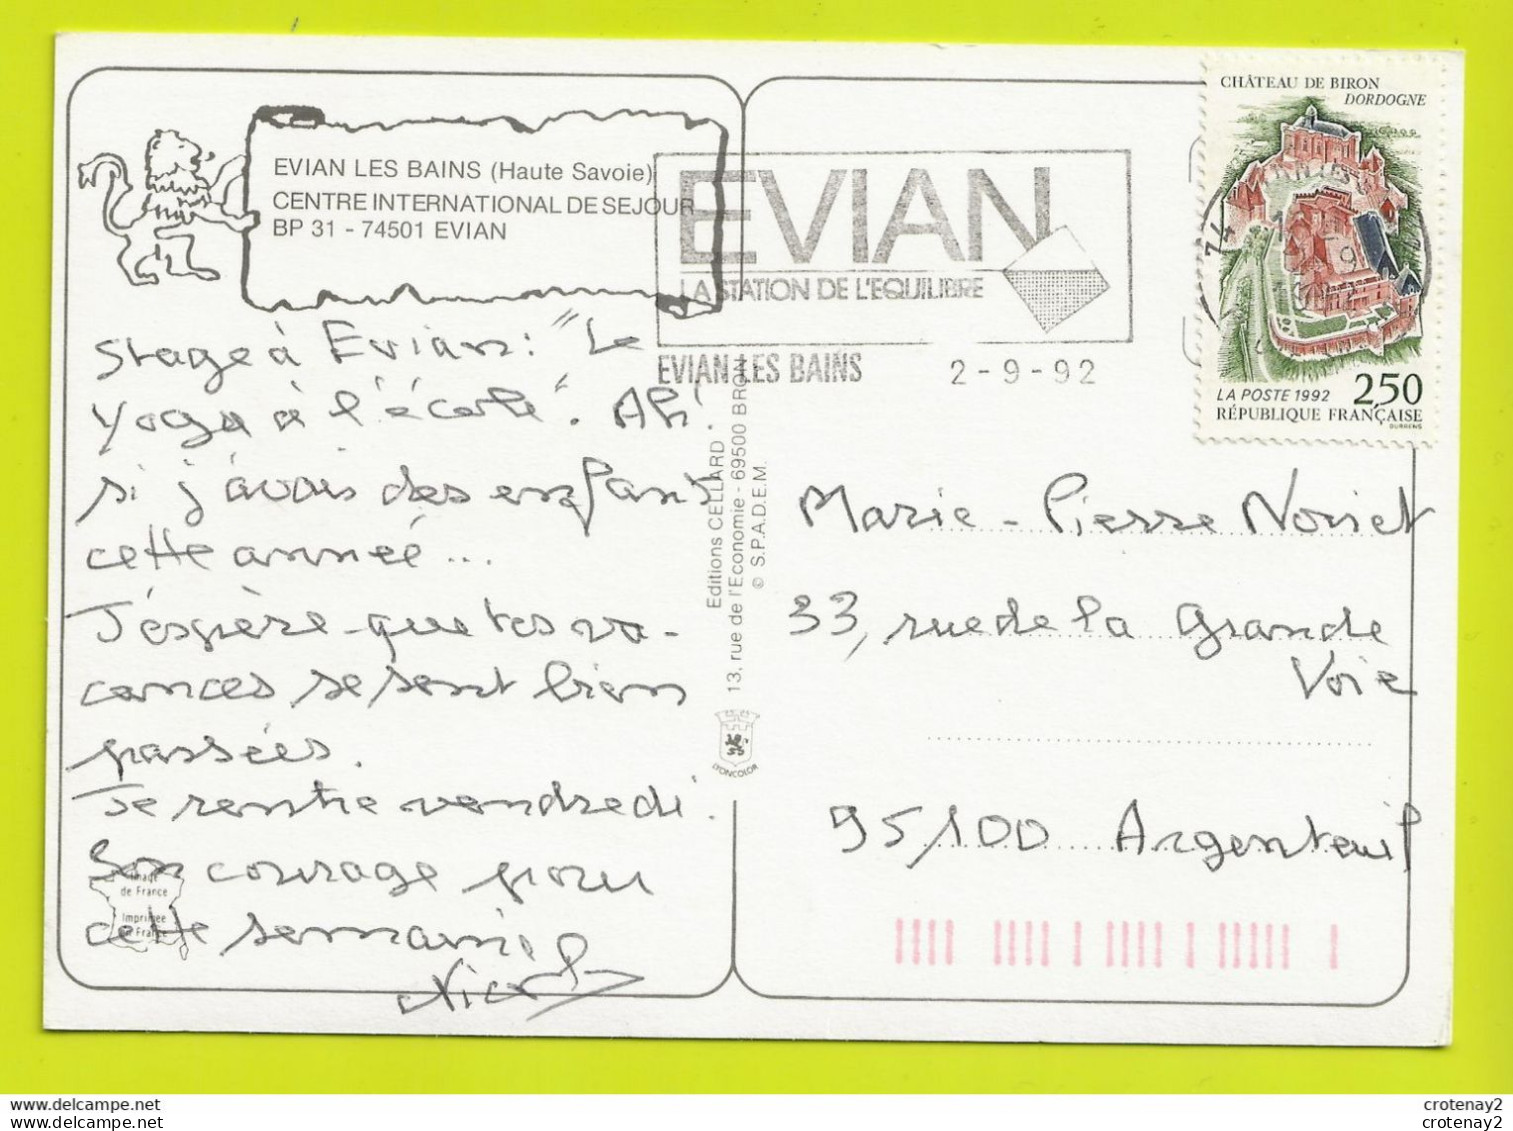 EVIAN LES BAINS (Haute Savoie)
CENTRE INTERNATIONAL DE SEJOUR
BP 31 - 74501 EVIAN
Stage à Evian: "Le
yoga à l'école". Ah!
si j'avais des enfants
cette année...
J'espère que tes va-
cances se sont bien
passées.
Je rentre vendredi.
Bon courage pour
cette semaine
Nicole
Image
de France
Imprimée
en France
Editions CELLARD
13, rue de l'Economie - 69500 BRON
© S.P.A.D.E.M.
LYONCOLOR
EVIAN
LA STATION DE L'EQUILIBRE
EVIAN LES BAINS 2-9-92
CHÂTEAU DE BIRON
DORDOGNE
74
LA POSTE 1992 2,50
RÉPUBLIQUE FRANÇAISE
DURRENS
Marie-Pierre Noriet
33, rue de la Grande
Voie
95100 Argenteuil
delcampe.net
delcampe.net
crotenay2
crotenay2